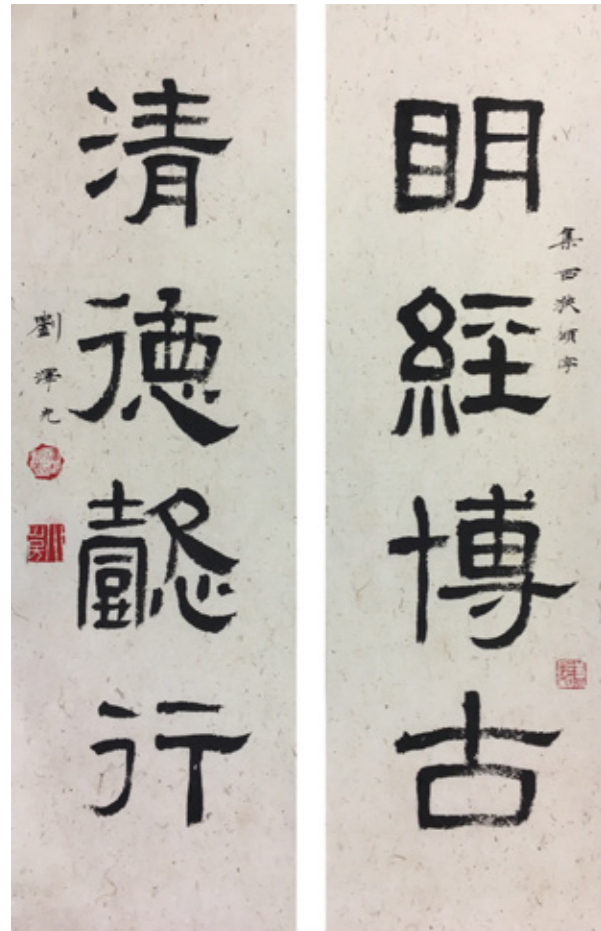 明經博古
集西狹頌字
清德懿行
劉澤光